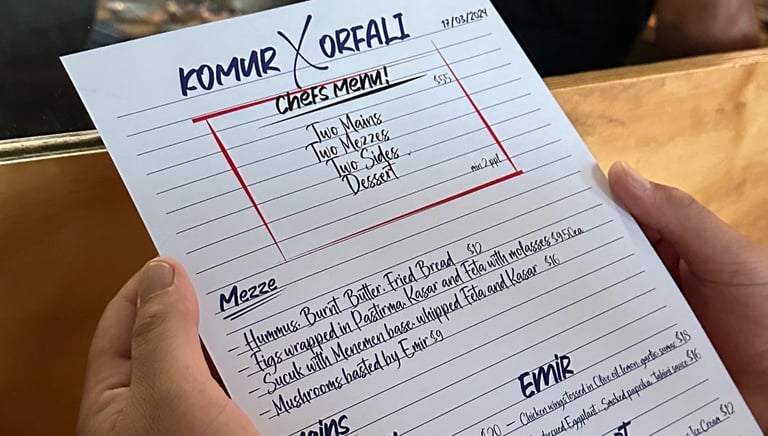 KOMUR X ORFALI
17/03/2024
Chefs Menu!
$55
Two Mains
Two Mezzes
Two Sides
Dessert
min 2 ppl
Mezze
- Hummus, Burnt Butter, Fried Bread $12
- Figs wrapped in Pastirma, Kasar and Feta with molasses $9.50ea
- Sucuk with Menemen base, whipped Feta and Kasar $16
- Mushrooms basted by Emir $9
Emir
$20
- Chicken wings tossed in Olive oil, lemon, garlic, sumac $18
Eggplant, Smoked paprika, Tahini sauce $16
Ice Cream $12